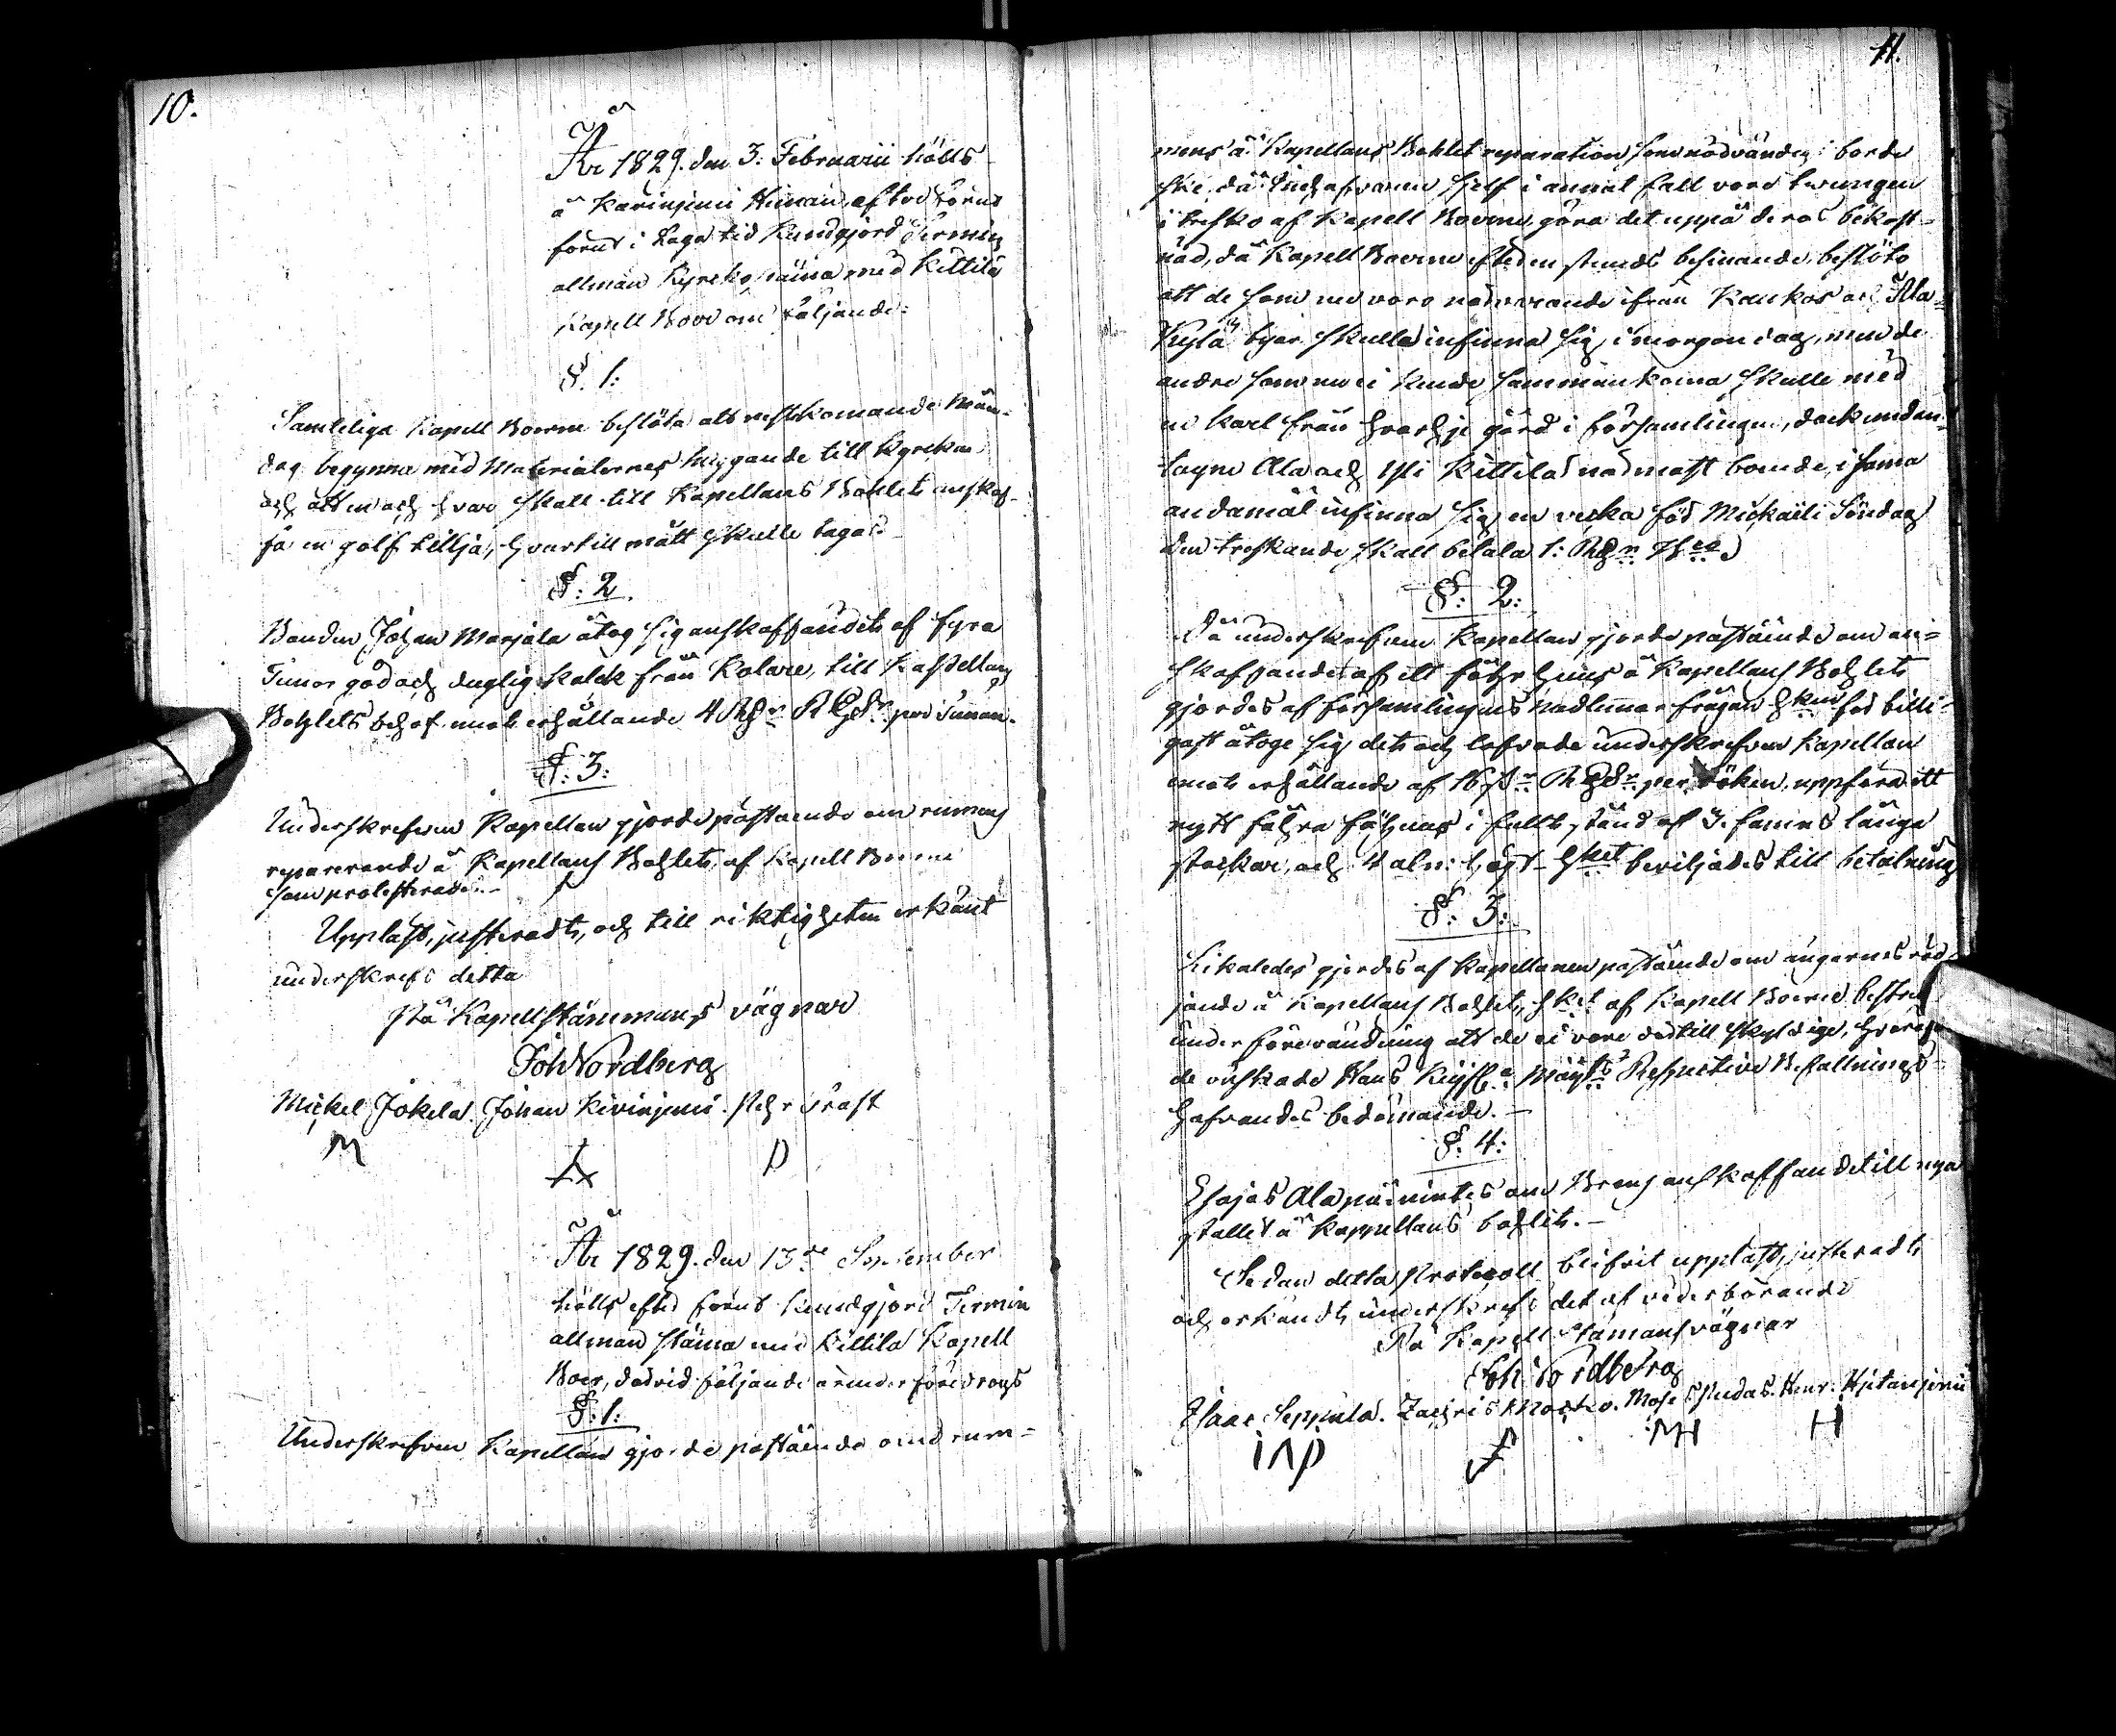 10.
År 1829. den 3. Februarii hölls
å Kavinjemi Hemman, efter
förut i Laga tid Kundgjord Termin
allmän Kyrkostäma med Kittilä
Kapell Boer om följande:
§. 1:
Samteliga Kapell Boerne beslöto att nestkomande Mån-
dag begynna med Materialernes huggande till Kyrkan
och att en och hvar skall till Kapellans Bohlet anskaf-
fa en golf tillja, hvartill mått skulle tagas
§: 2.
Bonden Johan Marjala åtog sig anskaffandet af fyra
Tunor god och duglig kalck från Kolare, till Kapellans
Bohlets behof emot erhållande 4 Rdr RGds per Tunan.
§: 3:
Underskrefven Kapellan gjorde påstående om rumens
reparerande å Kapellans Bohlet, af Kapell Boerne
som protesterades.-
Uppläst, justeradt, och till riktigheten erkänt
underskrefs detta
På Kapellstämmans vägnar
Joh Nordberg
Mickel Jokela. Johan Kivinjemi. Pehr Srast
M
P
År 1829. den 13de September
hölls efter förut kundgjord Termin
allmän stäma med Kittilä Kapell
Boer, dervid följande ärender föredrogs
§: 1:
Underskrefven Kapellan gjorde påstående om rum-
11.
mens å Kapellans Bohlet reparation som nödvändig borde
ske, då Innehafvaren sjelf i annat fall vore twungen
i tresko af Kapell Boerne, göra det uppå deras bekost-
nad, då Kapell Boerne efter en stunds besinande beslöto
att de som nu voro närvarande ifrån Kaukos och Ala-
Kylä byar skulle infinna sig i morgon dag, men de
andre som nu ei kunde sammankoma skulle med
en karl från hvarje gård i församlingen, dock undan-
tagne Ala och Yli Kittilä närmast boende, i sama
andamål infinna sig en vecka för Mickaeli Söndag
den treskande skall betala 1: Rdr
§: 2:
Då underskrefven Kapellan gjorde påstående om an-
skaffandet af ett fähr huus å Kapellans Bohlet
gjordes af församlingens Medlimar frågan hvem för billi-
gast åtoge sig det och lofvade underskrefven Kapellan
emot erhållande af 16 s. RGds per röken, uppföra ett
nytt fähus i fullt stånd af 3. famns långa
stockar, och 4 aln: högt hvilket beviljades till betalning
§: 3:
Likaledes gjordes af Kapellanen påstående om ängarnes röd-
jande å Kapellans Bohlet, hvilket af Kapell Boerne bestreds
under förevändning att de ei vore dertill skyldige, hvaröfver
de önskade Hans Kejserl. Mayts Respective Befallnings-
hafvandes bedömande.-
§: 4:
Esajas Ala påmintes om Brons anskaffande till nya
stallet å Kappellans bohlet.-
Sedan detta Protocoll blifvit uppläst, justeradt
och erkändt underskrefs det af vederbörande
På Kapell Stämans vägnar
Joh Nordberg
Isaac Seppälä. Zachris Mosess Pudas. Henr. Hjetanjemi
MH
H